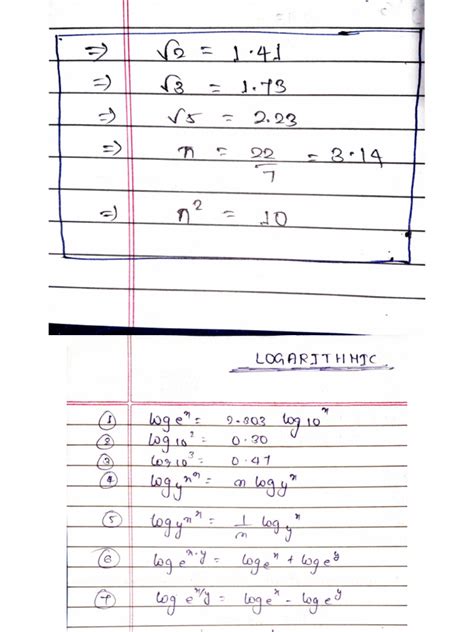 =) √2 = 1.41
=) √3 = 1.73
=) √5 = 2.23
=) π = 22/7 = 3.14
=) π² = 10
LOGARITHMIC
① logeˣ = 2.303 log10ˣ
② log10² = 0.30
③ log10³ = 0.47
④ = n logyˣ
⑤ = 1/n logyˣ
⑥ logeˣ·ʸ = logeˣ + logeʸ
⑦ logeˣ/ʸ = logeˣ - logeʸ